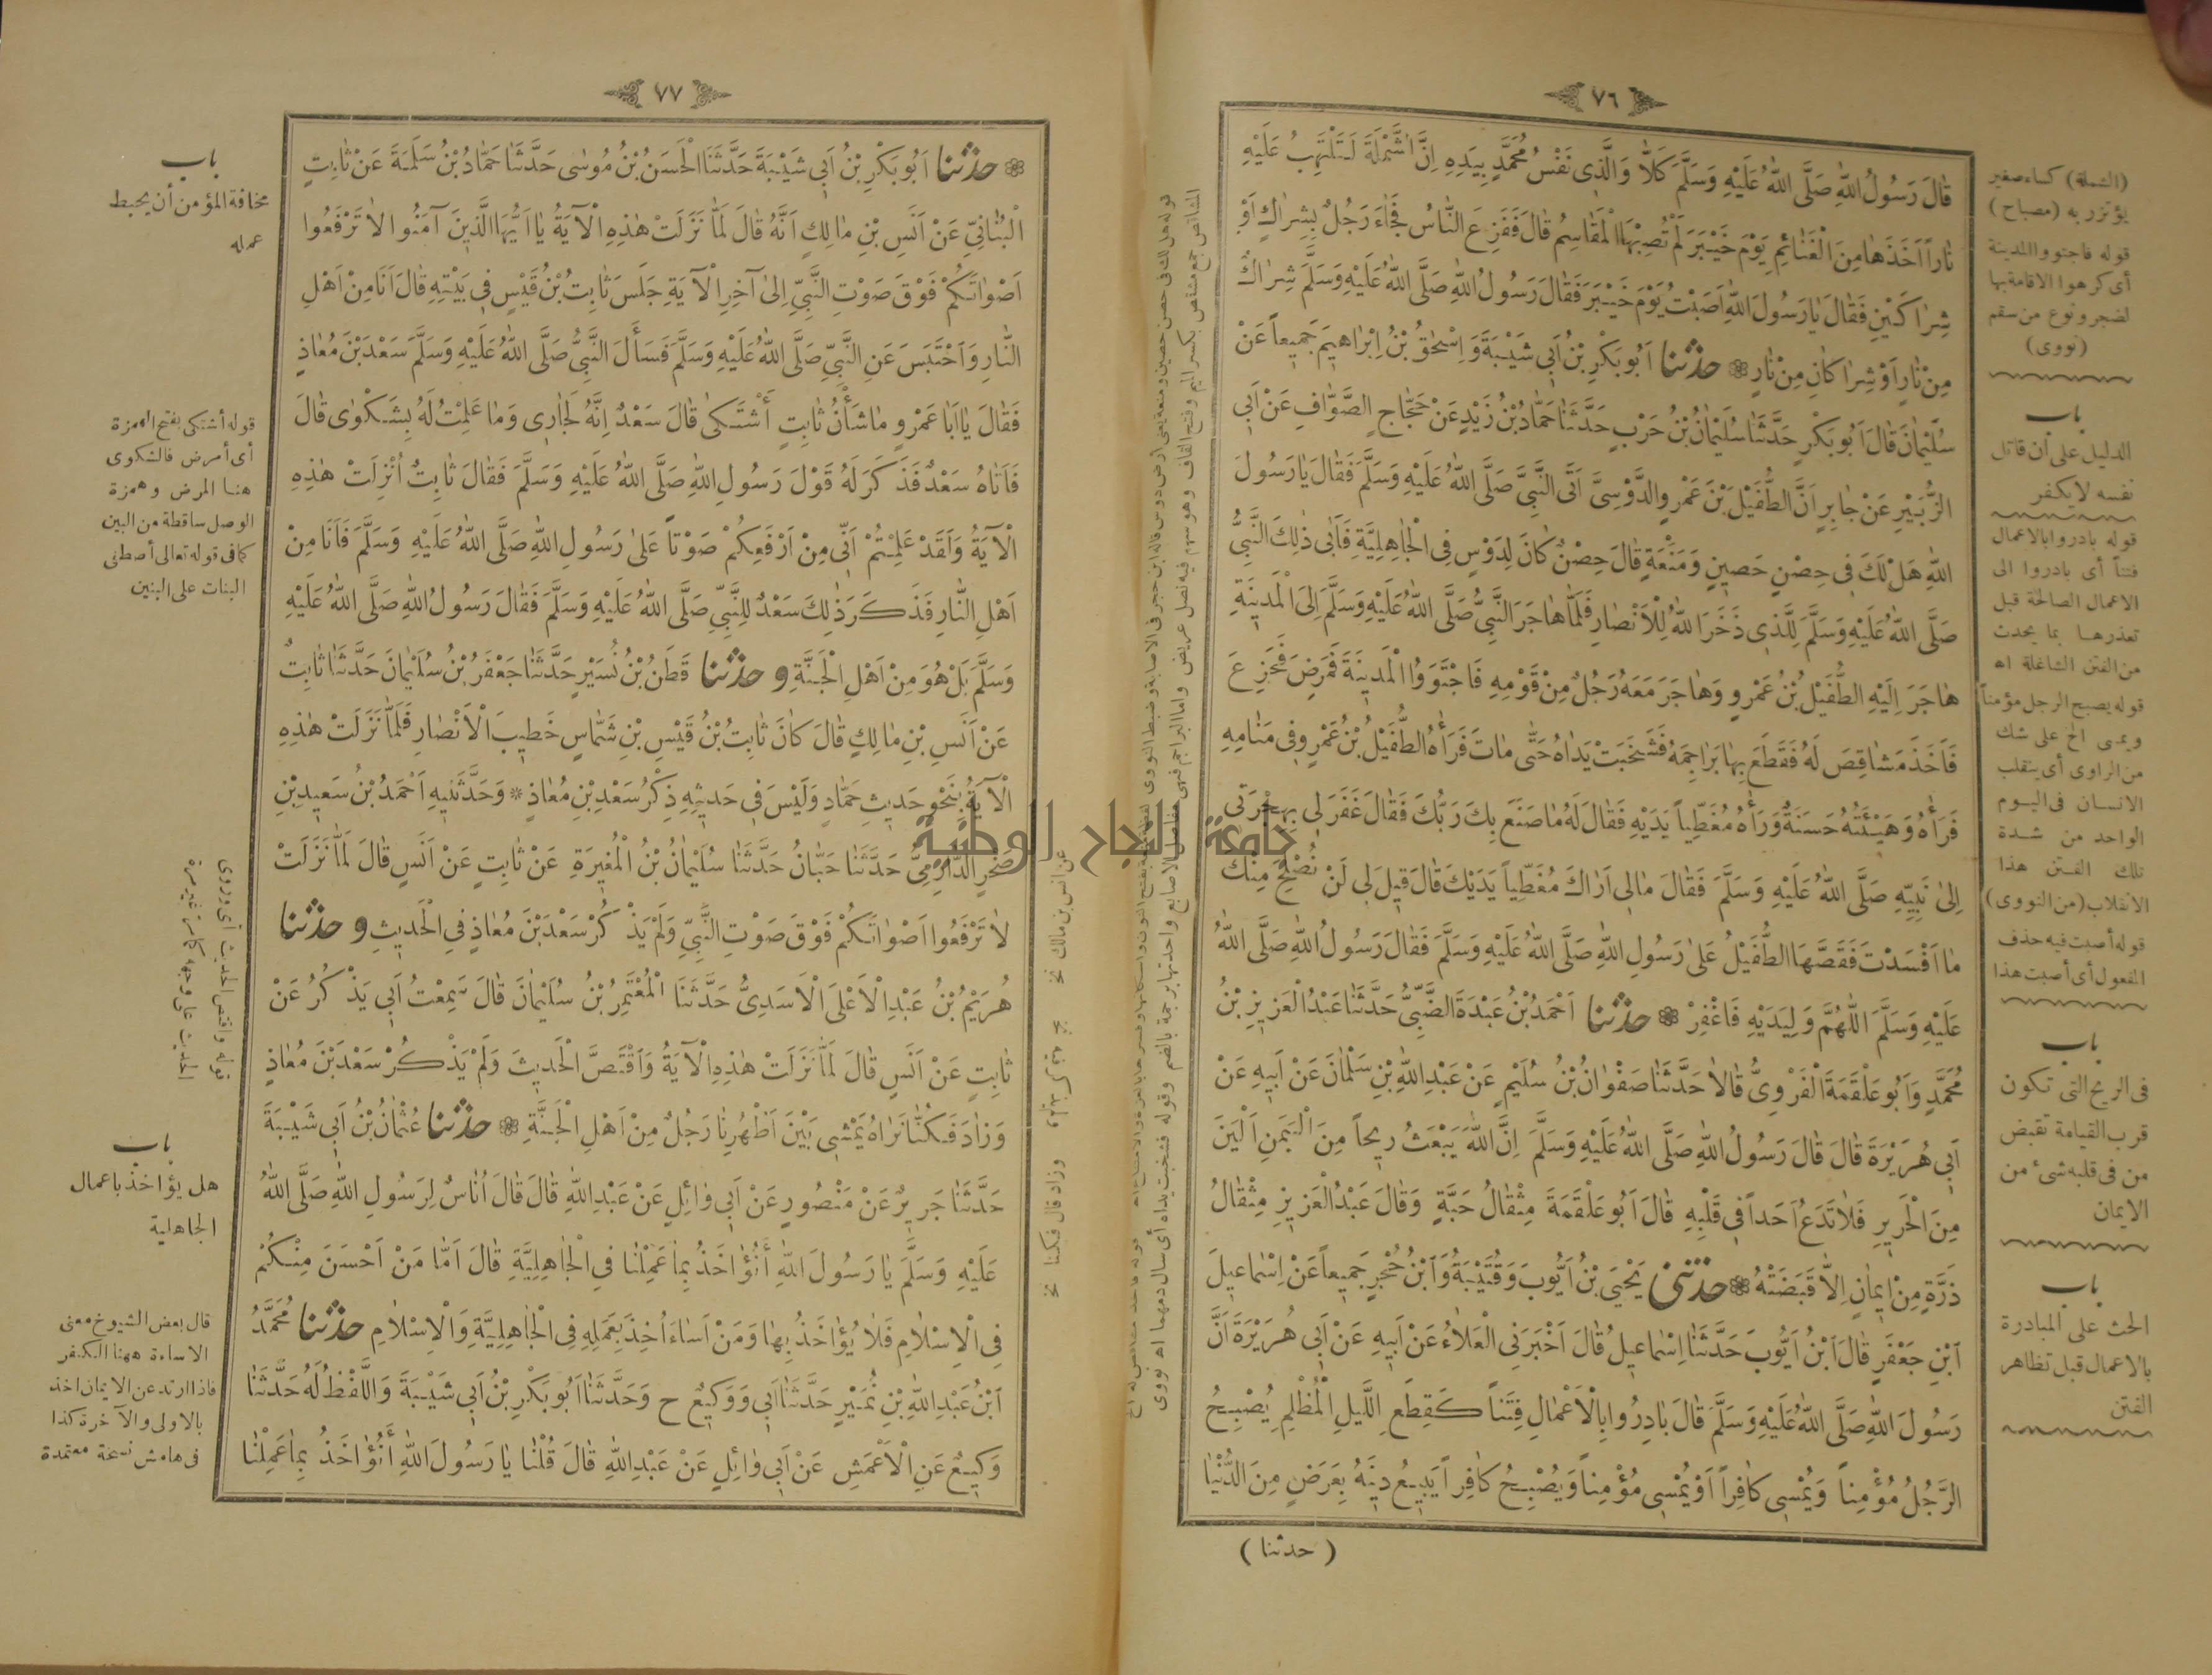 ﴿ ٧٦ ﴾
قَالَ رَسُولُ اللهِ صَلَّى اللهُ عَلَيْهِ وَسَلَّمَ كَلَّا وَالَّذِى نَفْسُ مُحَمَّدٍ بِيَدِهِ اِنَّ الشَّمْلَةَ لَتَلْتَهِبُ عَلَيْهِ
نَاراً اَخَذَهَا مِنَ الْغَنَائِمِ يَوْمَ خَيْبَرَ لَمْ تُصِبْهَا الْمَقَاسِمُ قَالَ فَفَزِعَ النَّاسُ فَجَاءَ رَجُلٌ بِشِرَاكٍ اَوْ
شِرَاكَيْنِ فَقَالَ يَا رَسُولَ اللهِ اَصَبْتُ يَوْمَ خَيْبَرَ فَقَالَ رَسُولُ اللهِ صَلَّى اللهُ عَلَيْهِ وَسَلَّمَ شِرَاكٌ
مِنْ نَارٍ اَوْ شِرَاكَانِ مِنْ نَارٍ ❁ حدثنا اَبُو بَكْرِ بْنُ اَبِي شَيْبَةَ وَاِسْحٰقُ بْنُ اِبْرَاهِيمَ جَمِيعاً عَنْ
سُلَيْمَانَ قَالَ اَبُو بَكْرٍ حَدَّثَنَا سُلَيْمَانُ بْنُ حَرْبٍ حَدَّثَنَا حَمَّادُ بْنُ زَيْدٍ عَنْ حَجَّاجٍ الصَّوَّافِ عَنْ اَبِي
الزُّبَيْرِ عَنْ جَابِرٍ اَنَّ الطُّفَيْلَ بْنَ عَمْرٍو الدَّوْسِىَّ اَتَى النَّبِىَّ صَلَّى اللهُ عَلَيْهِ وَسَلَّمَ فَقَالَ يَا رَسُولَ
اللهِ هَلْ لَكَ فِى حِصْنٍ حَصِينٍ وَمَنْعَةٍ قَالَ حِصْنٌ كَانَ لِدَوْسٍ فِى الْجَاهِلِيَّةِ فَاَبَى ذٰلِكَ النَّبِىُّ
صَلَّى اللهُ عَلَيْهِ وَسَلَّمَ لِلَّذِى ذَخَرَ اللهُ لِلْاَنْصَارِ فَلَمَّا هَاجَرَ النَّبِىُّ صَلَّى اللهُ عَلَيْهِ وَسَلَّمَ اِلَى الْمَدِينَةِ
هَاجَرَ اِلَيْهِ الطُّفَيْلُ بْنُ عَمْرٍو وَهَاجَرَ مَعَهُ رَجُلٌ مِنْ قَوْمِهِ فَاجْتَوَوُا الْمَدِينَةَ فَمَرِضَ فَجَزِعَ
فَاَخَذَ مَشَاقِصَ لَهُ فَقَطَعَ بِهَا بَرَاجِمَهُ فَشَخَبَتْ يَدَاهُ حَتَّى مَاتَ فَرَاٰهُ الطُّفَيْلُ بْنُ عَمْرٍو فِى مَنَامِهِ
فَرَاٰهُ وَهَيْئَتُهُ حَسَنَةٌ وَرَاٰهُ مُغَطِّياً يَدَيْهِ فَقَالَ لَهُ مَا صَنَعَ بِكَ رَبُّكَ فَقَالَ غَفَرَ لِى بِهِجْرَتِى
اِلَى نَبِيِّهِ صَلَّى اللهُ عَلَيْهِ وَسَلَّمَ فَقَالَ مَا لِى اَرَاكَ مُغَطِّياً يَدَيْكَ قَالَ قِيلَ لِى لَنْ نُصْلِحَ مِنْكَ
مَا اَفْسَدْتَ فَقَصَّهَا الطُّفَيْلُ عَلَى رَسُولِ اللهِ صَلَّى اللهُ عَلَيْهِ وَسَلَّمَ فَقَالَ رَسُولُ اللهِ صَلَّى اللهُ
عَلَيْهِ وَسَلَّمَ اَللّٰهُمَّ وَلِيَدَيْهِ فَاغْفِرْ ❁ حدثنا اَحْمَدُ بْنُ عَبْدَةَ الضَّبِّىُّ حَدَّثَنَا عَبْدُ الْعَزِيزِ بْنُ
مُحَمَّدٍ وَاَبُو عَلْقَمَةَ الْفَرْوِىُّ قَالَا حَدَّثَنَا صَفْوَانُ بْنُ سُلَيْمٍ عَنْ عَبْدِ اللهِ بْنِ سَلْمَانَ عَنْ اَبِيهِ عَنْ
اَبِى هُرَيْرَةَ قَالَ قَالَ رَسُولُ اللهِ صَلَّى اللهُ عَلَيْهِ وَسَلَّمَ اِنَّ اللهَ يَبْعَثُ رِيحاً مِنَ الْيَمَنِ اَلْيَنَ
مِنَ الْحَرِيرِ فَلَا تَدَعُ اَحَداً فِى قَلْبِهِ قَالَ اَبُو عَلْقَمَةَ مِثْقَالُ حَبَّةٍ وَقَالَ عَبْدُ الْعَزِيزِ مِثْقَالُ
ذَرَّةٍ مِنْ اِيمَانٍ اِلَّا قَبَضَتْهُ ❁ حدثنى يَحْيَى بْنُ اَيُّوبَ وَقُتَيْبَةُ وَابْنُ حُجْرٍ جَمِيعاً عَنْ اِسْمَاعِيلَ
ابْنِ جَعْفَرٍ قَالَ ابْنُ اَيُّوبَ حَدَّثَنَا اِسْمَاعِيلُ قَالَ اَخْبَرَنِى الْعَلَاءُ عَنْ اَبِيهِ عَنْ اَبِى هُرَيْرَةَ اَنَّ
رَسُولَ اللهِ صَلَّى اللهُ عَلَيْهِ وَسَلَّمَ قَالَ بَادِرُوا بِالْاَعْمَالِ فِتَناً كَقِطَعِ اللَّيْلِ الْمُظْلِمِ يُصْبِحُ
الرَّجُلُ مُؤْمِناً وَيُمْسِى كَافِراً اَوْ يُمْسِى مُؤْمِناً وَيُصْبِحُ كَافِراً يَبِيعُ دِينَهُ بِعَرَضٍ مِنَ الدُّنْيَا
( حدثنا )
(الشملة) كساء صغير
يؤتزر به (مصباح)
قوله فاجتووا المدينة
أى كرهوا الاقامة بها
لضجر ونوع من سقم
(نووى)
باب
الدليل على أن قاتل
نفسه لا يكفر
قوله بادروا بالاعمال
فتنا أى بادروا الى
الاعمال الصالحة قبل
تعذرها بما يحدث
من الفتن الشاغلة اه
قوله يصبح الرجل مؤمنا
ويمسى الخ على شك
من الراوى أى ينقلب
الانسان فى اليوم
الواحد من شدة
تلك الفتن هذا
الانقلاب (من النووى)
قوله أصبت فيه حذف
المفعول أى أصبت هذا
باب
فى الريح التى تكون
قرب القيامة تقبض
من فى قلبه شئ من
الايمان
باب
الحث على المبادرة
بالاعمال قبل تظاهر
الفتن
﴿ ٧٧ ﴾
❁ حدثنا اَبُو بَكْرِ بْنُ اَبِي شَيْبَةَ حَدَّثَنَا الْحَسَنُ بْنُ مُوسَى حَدَّثَنَا حَمَّادُ بْنُ سَلَمَةَ عَنْ ثَابِتٍ
الْبُنَانِىِّ عَنْ اَنَسِ بْنِ مَالِكٍ اَنَّهُ قَالَ لَمَّا نَزَلَتْ هٰذِهِ الْآيَةُ يَا اَيُّهَا الَّذِينَ آمَنُوا لَا تَرْفَعُوا
اَصْوَاتَكُمْ فَوْقَ صَوْتِ النَّبِىِّ اِلَى آخِرِ الْآيَةِ جَلَسَ ثَابِتُ بْنُ قَيْسٍ فِى بَيْتِهِ قَالَ اَنَا مِنْ اَهْلِ
النَّارِ وَاحْتَبَسَ عَنِ النَّبِىِّ صَلَّى اللهُ عَلَيْهِ وَسَلَّمَ فَسَأَلَ النَّبِىُّ صَلَّى اللهُ عَلَيْهِ وَسَلَّمَ سَعْدَ بْنَ مُعَاذٍ
فَقَالَ يَا اَبَا عَمْرٍو مَا شَأْنُ ثَابِتٍ أَشْتَكَى قَالَ سَعْدٌ اِنَّهُ لَجَارِى وَمَا عَلِمْتُ لَهُ بِشَكْوَى قَالَ
فَاَتَاهُ سَعْدٌ فَذَكَرَ لَهُ قَوْلَ رَسُولِ اللهِ صَلَّى اللهُ عَلَيْهِ وَسَلَّمَ فَقَالَ ثَابِتٌ اُنْزِلَتْ هٰذِهِ
الْآيَةُ وَلَقَدْ عَلِمْتُمْ اَنِّى مِنْ اَرْفَعِكُمْ صَوْتاً عَلَى رَسُولِ اللهِ صَلَّى اللهُ عَلَيْهِ وَسَلَّمَ فَاَنَا مِنْ
اَهْلِ النَّارِ فَذَكَرَ ذٰلِكَ سَعْدٌ لِلنَّبِىِّ صَلَّى اللهُ عَلَيْهِ وَسَلَّمَ فَقَالَ رَسُولُ اللهِ صَلَّى اللهُ عَلَيْهِ
وَسَلَّمَ بَلْ هُوَ مِنْ اَهْلِ الْجَنَّةِ و حدثنا قَطَنُ بْنُ نُسَيْرٍ حَدَّثَنَا جَعْفَرُ بْنُ سُلَيْمَانَ حَدَّثَنَا ثَابِتٌ
عَنْ اَنَسِ بْنِ مَالِكٍ قَالَ كَانَ ثَابِتُ بْنُ قَيْسِ بْنِ شَمَّاسٍ خَطِيبَ الْاَنْصَارِ فَلَمَّا نَزَلَتْ هٰذِهِ
الْآيَةُ بِنَحْوِ حَدِيثِ حَمَّادٍ وَلَيْسَ فِى حَدِيثِهِ ذِكْرُ سَعْدِ بْنِ مُعَاذٍ * وَحَدَّثَنِيهِ اَحْمَدُ بْنُ سَعِيدِ بْنِ
صَخْرٍ الدَّارِمِىُّ حَدَّثَنَا حَبَّانُ حَدَّثَنَا سُلَيْمَانُ بْنُ الْمُغِيرَةِ عَنْ ثَابِتٍ عَنْ اَنَسٍ قَالَ لَمَّا نَزَلَتْ
لَا تَرْفَعُوا اَصْوَاتَكُمْ فَوْقَ صَوْتِ النَّبِىِّ وَلَمْ يَذْكُرْ سَعْدَ بْنَ مُعَاذٍ فِى الْحَدِيثِ و حدثنا
هُرَيْمُ بْنُ عَبْدِ الْاَعْلَى الْاَسَدِىُّ حَدَّثَنَا الْمُعْتَمِرُ بْنُ سُلَيْمَانَ قَالَ سَمِعْتُ اَبِى يَذْكُرُ عَنْ
ثَابِتٍ عَنْ اَنَسٍ قَالَ لَمَّا نَزَلَتْ هٰذِهِ الْآيَةُ وَاقْتَصَّ الْحَدِيثَ وَلَمْ يَذْكُرْ سَعْدَ بْنَ مُعَاذٍ
وَزَادَ فَكُنَّا نَرَاهُ يَمْشِى بَيْنَ اَظْهُرِنَا رَجُلٌ مِنْ اَهْلِ الْجَنَّةِ ❁ حدثنا عُثْمَانُ بْنُ اَبِى شَيْبَةَ
حَدَّثَنَا جَرِيرٌ عَنْ مَنْصُورٍ عَنْ اَبِى وَائِلٍ عَنْ عَبْدِ اللهِ قَالَ قَالَ اُنَاسٌ لِرَسُولِ اللهِ صَلَّى اللهُ
عَلَيْهِ وَسَلَّمَ يَا رَسُولَ اللهِ أَنُؤَاخَذُ بِمَا عَمِلْنَا فِى الْجَاهِلِيَّةِ قَالَ اَمَّا مَنْ اَحْسَنَ مِنْكُمْ
فِى الْاِسْلَامِ فَلَا يُؤَاخَذُ بِهَا وَمَنْ اَسَاءَ اُخِذَ بِعَمَلِهِ فِى الْجَاهِلِيَّةِ وَالْاِسْلَامِ حدثنا مُحَمَّدُ
ابْنُ عَبْدِ اللهِ بْنِ نُمَيْرٍ حَدَّثَنَا اَبِى وَوَكِيعٌ ح وَحَدَّثَنَا اَبُو بَكْرِ بْنُ اَبِى شَيْبَةَ وَاللَّفْظُ لَهُ حَدَّثَنَا
وَكِيعٌ عَنِ الْاَعْمَشِ عَنْ اَبِى وَائِلٍ عَنْ عَبْدِ اللهِ قَالَ قُلْنَا يَا رَسُولَ اللهِ أَنُؤَاخَذُ بِمَا عَمِلْنَا
باب
مخافة المؤمن أن يحبط
عمله
قوله أشتكى بفتح الهمزة
أى أمرض فالشكوى
هنا المرض وهمزة
الوصل ساقطة من البين
كما فى قوله تعالى أصطفى
البنات على البنين
باب
هل يؤاخذ باعمال
الجاهلية
قال بعض الشيوخ معنى
الاساءة ههنا الكفر
فاذا ارتد عن الايمان اخذ
بالاولى والآخرة كذا
فى هامش نسخة معتمدة
عن انس بن مالك نخ
وزاد قال فكنا نخ
جامعة النجاح الوطنية